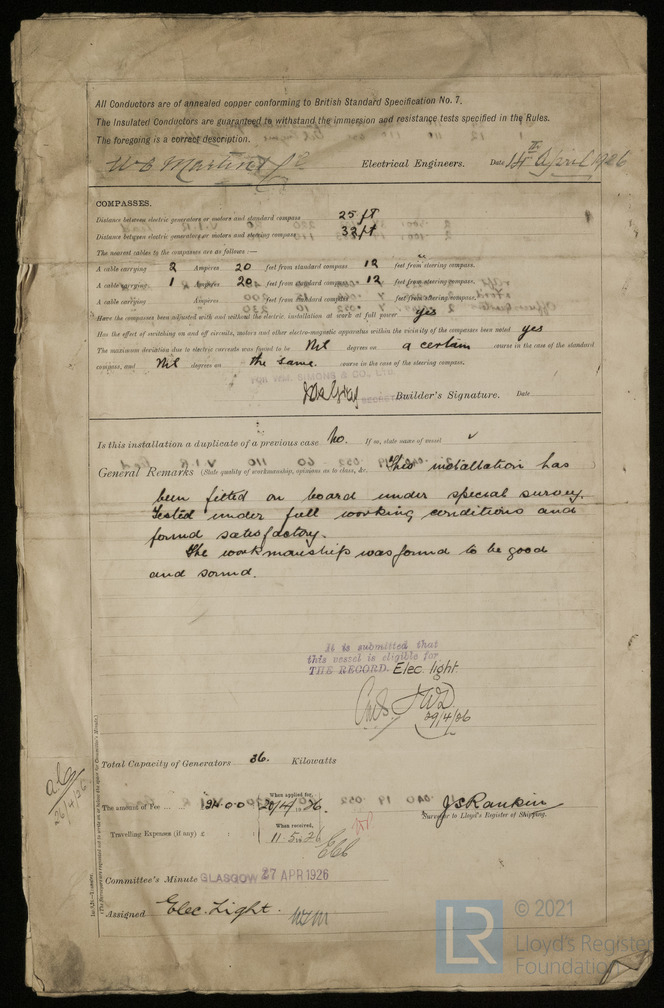 All Conductors are of annealed copper conforming to British Standard Specification No. 7.
The Insulated Conductors are guaranteed to withstand the immersion and resistance tests specified in the Rules.
The foregoing is a correct description.
W C Martin & Co Electrical Engineers. Date 14th April 1926
COMPASSES.
Distance between electric generators or motors and standard compass 25 ft
Distance between electric generators or motors and steering compass 32 ft
The nearest cables to the compasses are as follows :—
A cable carrying 2 Ampères 20 feet from standard compass 12 feet from steering compass.
A cable carrying 1 Ampères 20 feet from standard compass 12 feet from steering compass.
A cable carrying Ampères feet from standard compass feet from steering compass.
Have the compasses been adjusted with and without the electric installation at work at full power yes
Has the effect of switching on and off circuits, motors and other electro-magnetic apparatus within the vicinity of the compasses been noted yes
The maximum deviation due to electric currents was found to be Nil degrees on a certain course in the case of the standard
compass, and Nil degrees on the same course in the case of the steering compass.
FOR WM. SIMONS & CO., LTD.
Builder's Signature. Date
Is this installation a duplicate of a previous case No. If so, state name of vessel ✓
General Remarks (State quality of workmanship, opinions as to class, &c. This installation has
been fitted on board under special survey.
Tested under full working conditions and
found satisfactory.
The workmanship was found to be good
and sound.
It is submitted that
this vessel is eligible for
THE RECORD. Elec. light.
29/4/26
Total Capacity of Generators 36. Kilowatts
The amount of Fee ... ... When applied for, 26
J S Rankin
Surveyor to Lloyd's Register of Shipping.
Travelling Expenses (if any) £ : : When received, 11.5.1926
26/4/26
Committee's Minute GLASGOW 27 APR 1926
Assigned Elec. Light.
LR © 2021
Lloyd's Register
Foundation